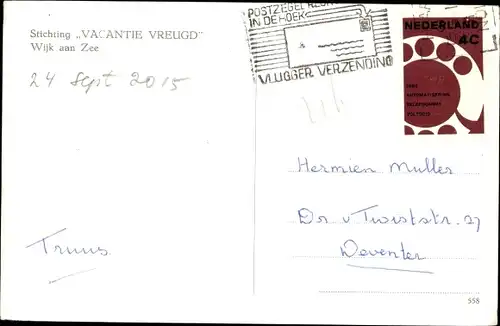 Stichting „VACANTIE VREUGD"
Wijk aan Zee
24 Sept 2015
Truus
POSTZEGEL RECHTS
IN DE HOEK
VLUGGER VERZENDING
NEDERLAND
4C
1962
AUTOMATISERING
TELEFOONNET
VOLTOOID
Hermien Muller
Dr v Twiststr. 27
Deventer
558